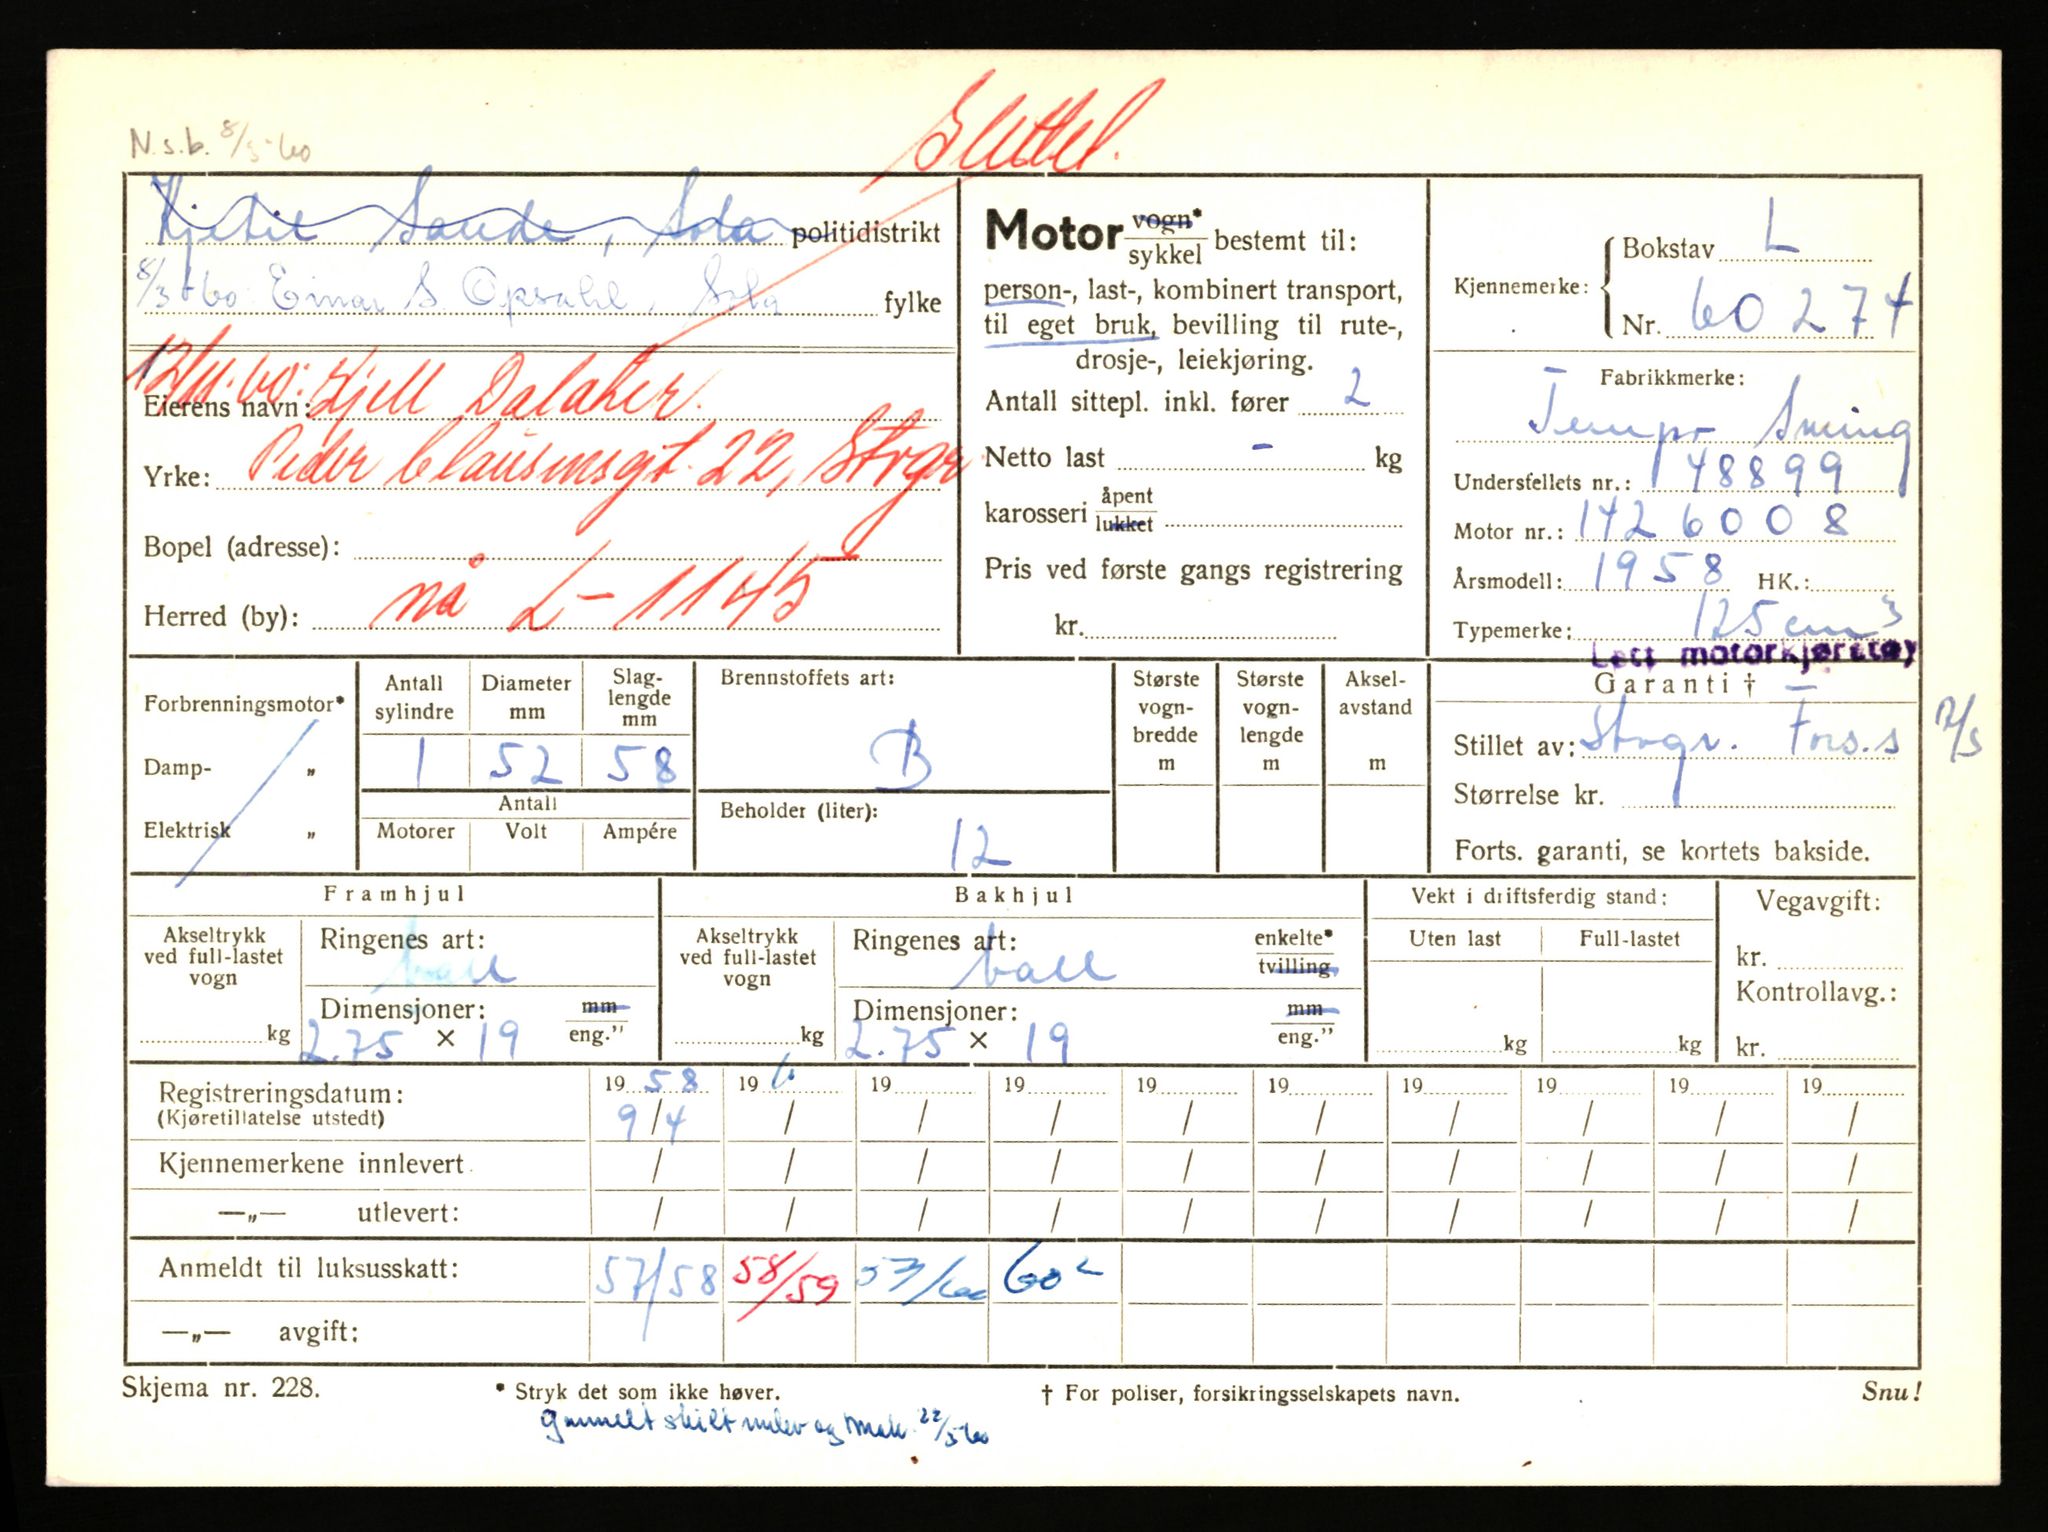 Slettet.
N.s.b. 8/3-60
Kjetil Sande, Sola politidistrikt
8/3-60 Einar S. Opsahl, Sola fylke
12/11.60: Kjell Dalaker.
Eierens navn:
Yrke: Peder Claussønsgt. 22, Stvgr
Bopel (adresse):
nå L-1145
Herred (by):
Motor vogn*
sykkel bestemt til:
person-, last-, kombinert transport,
til eget bruk, bevilling til rute-,
drosje-, leiekjøring.
Antall sittepl. inkl. fører 2
Netto last - kg
karosseri åpent
lukket
Pris ved første gangs registrering
kr.
Kjennemerke: Bokstav L
Nr. 60274
Fabrikkmerke:
Tempo Swing
Understellets nr.: 148899
Motor nr.: 1426008
Årsmodell: 1958 HK.:
Typemerke: 125 cm3
Lett motorkjøretøy
Garanti †
Stillet av: Stvgr. Fors.s 12/5
Størrelse kr.
Forts. garanti, se kortets bakside.
Forbrenningsmotor*
Damp- „
Elektrisk „
Antall sylindre Diameter mm Slaglengde mm
1 52 58
Antall
Motorer Volt Ampére
Brennstoffets art:
B
Beholder (liter):
12
Største vognbredde m Største vognlengde m Akselavstand m
Framhjul Bakhjul Vekt i driftsferdig stand: Vegavgift:
Akseltrykk ved full-lastet vogn kg
Ringenes art: ball
Dimensjoner: mm
2.75 × 19 eng."
Akseltrykk ved full-lastet vogn kg
Ringenes art: ball enkelte*
tvilling
Dimensjoner: mm
2.75 × 19 eng."
Uten last Full-lastet
kg kg
kr.
Kontrollavg.:
kr.
Registreringsdatum: 1958 196 19 19 19 19 19 19 19 19
(Kjøretillatelse utstedt) 9/4 / / / / / / / / /
Kjennemerkene innlevert / / / / / / / / / /
—„— utlevert: / / / / / / / / / /
Anmeldt til luksusskatt: 57/58 58/59 59/60 60²
—„— avgift:
Skjema nr. 228. * Stryk det som ikke høver. † For poliser, forsikringsselskapets navn. Snu!
gammelt skilt innlev og mak. 22/3-60